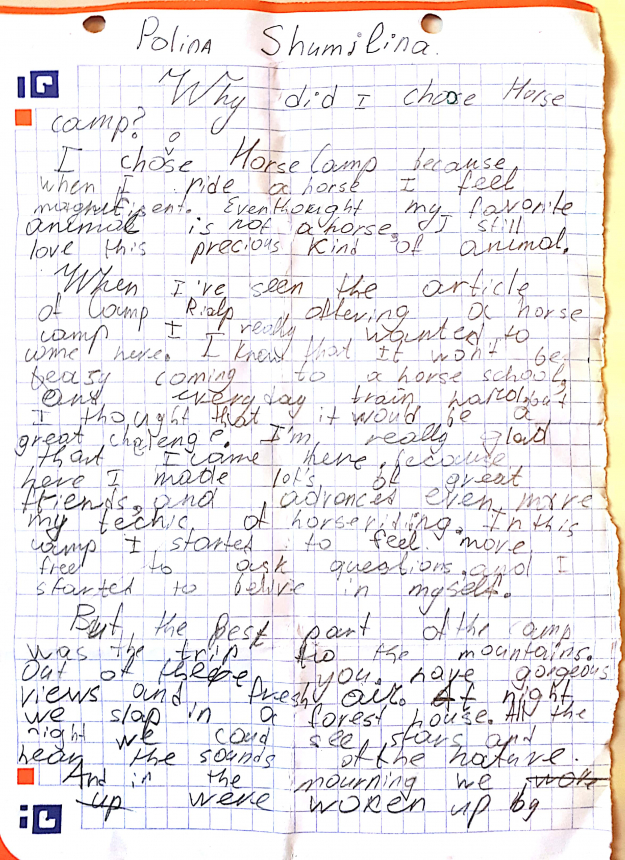 Polina Shumilina.
Why did I choose Horse
camp?
I chose Horse Camp because
when I ride a horse I feel
magnificent. Eventhought my favorite
animal is not a horse, I still
love this precious kind of animal.
When I've seen the article
of Camp Rialp, offering a horse
camp I really wanted to
come here. I knew that it won't be
easy coming to a horse school,
and everyday train hard, but
I thought that it would be a
great chalenge. I'm really glad
that I came here because
here I made lot's of great
friends, and advanced even more
my technic of horseriding. In this
camp I started to feel more
free to ask questions, and I
started to belive in myself.
But the best part of the camp
was the trip to the mountains.
Out of there you have gorgeous
views and fresh air. At night
we slap in a forest house. At the
night we coud see stars and
hear the sounds of the nature.
And in the mourning we woke
up were woken up by